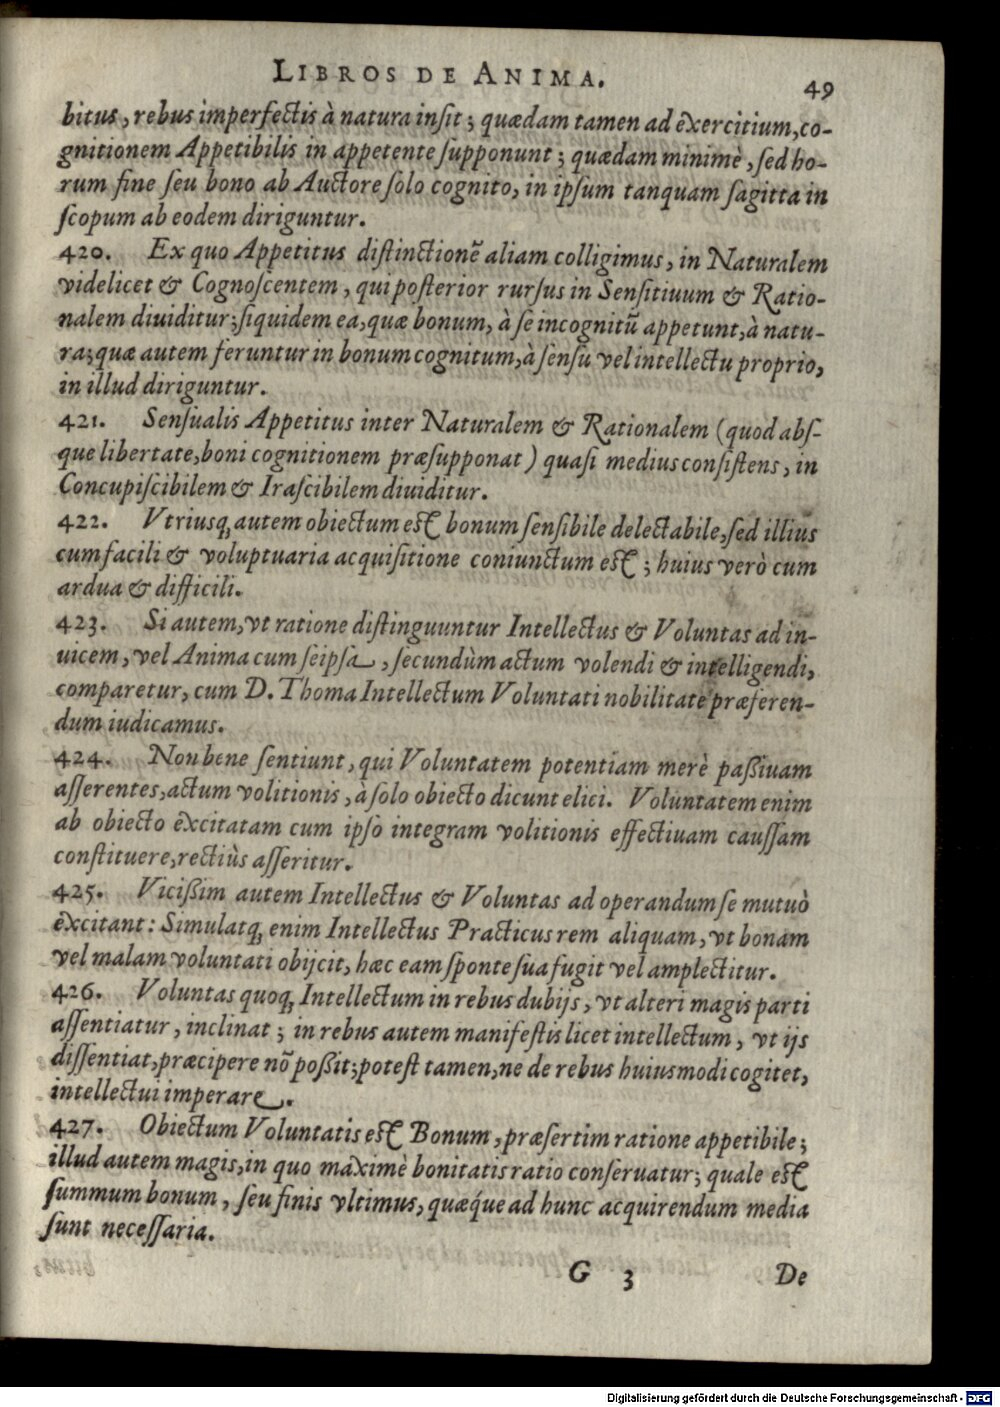 LIBROS DE ANIMA. 49
bitus, rebus imperfectis à natura insit; quædam tamen ad exercitium, co-
gnitionem Appetibilis in appetente supponunt; quædam minimè, sed ho-
rum fine seu bono ab Auctore solo cognito, in ipsum tanquam sagitta in
scopum ab eodem diriguntur.
420. Ex quo Appetitus distinctionē aliam colligimus, in Naturalem
videlicet & Cognoscentem, qui posterior rursus in Sensitiuum & Ratio-
nalem diuiditur; siquidem ea, quæ bonum, à se incognitū appetunt, à natu-
ra; quæ autem feruntur in bonum cognitum, à sensu vel intellectu proprio,
in illud diriguntur.
421. Sensualis Appetitus inter Naturalem & Rationalem (quod abs-
que libertate, boni cognitionem præsupponat) quasi medius consistens, in
Concupiscibilem & Irascibilem diuiditur.
422. Vtriusq; autem obiectum est bonum sensibile delectabile, sed illius
cum facili & voluptuaria acquisitione coniunctum est; huius verò cum
ardua & difficili.
423. Si autem, vt ratione distinguuntur Intellectus & Voluntas ad in-
uicem, vel Anima cum seipsa, secundùm actum volendi & intelligendi,
comparetur, cum D. Thoma Intellectum Voluntati nobilitate præferen-
dum iudicamus.
424. Non bene sentiunt, qui Voluntatem potentiam merè passiuam
asserentes, actum volitionis, à solo obiecto dicunt elici. Voluntatem enim
ab obiecto excitatam cum ipso integram volitionis effectiuam caussam
constituere, rectiùs asseritur.
425. Vicissim autem Intellectus & Voluntas ad operandum se mutuò
excitant: Simulatq; enim Intellectus Practicus rem aliquam, vt bonam
vel malam voluntati obijcit, hæc eam sponte sua fugit vel amplectitur.
426. Voluntas quoq; Intellectum in rebus dubijs, vt alteri magis parti
assentiatur, inclinat; in rebus autem manifestis licet intellectum, vt ijs
dissentiat, præcipere nō possit; potest tamen, ne de rebus huiusmodi cogitet,
intellectui imperare.
427. Obiectum Voluntatis est Bonum, præsertim ratione appetibile;
illud autem magis, in quo maximè bonitatis ratio conseruatur; quale est
summum bonum, seu finis vltimus, quæque ad hunc acquirendum media
sunt necessaria.
G 3 De
Digitalisierung gefördert durch die Deutsche Forschungsgemeinschaft - DFG